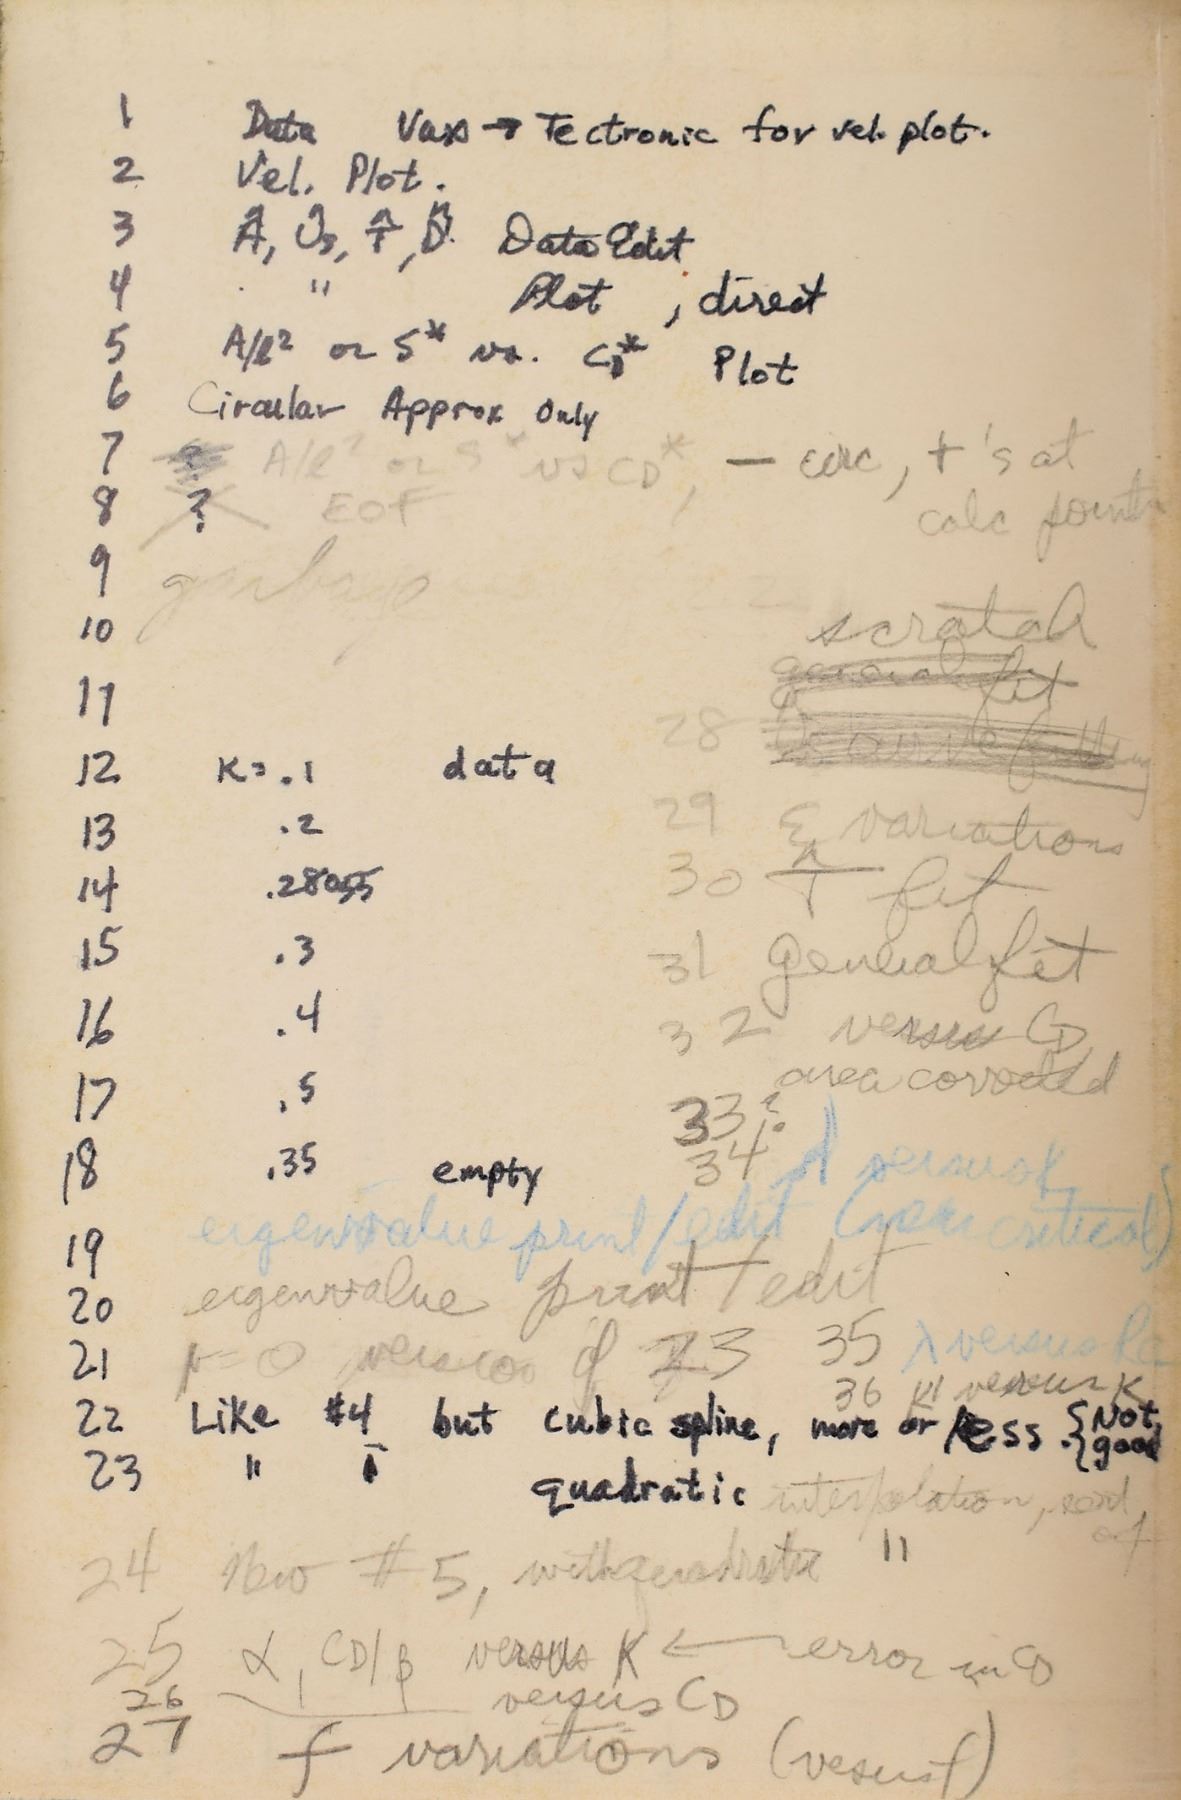 1 Data Vax → Tectronic for vel. plot.
2 Vel. Plot.
3 Â, Ûs, T̂, D̂. Data Edit
4 " Plot, direct
5 A/ℓ² or S* vs. CD* Plot
6 Circular Approx Only
7 ? A/ℓ² or S* vs CD*, — circ, +'s at
calc points
8 ? EOF
9 garbage
10 scratch
general fit
11
28
12 K = .1 data
13 .2
29 variations
14 .28055
30 T fit
15 .3
31 general fit
16 .4
32 versus CD
area corrected
17 .5
33 ?
18 .35 empty
34 λ versus K
19 eigenvalue print/edit (near critical)
20 eigenvalue print/edit
21 μ=0 version of 23
35 λ versus Re
36 K' versus K
22 Like #4 but cubic spline, more or less. {Not good
23 " " quadratic interpolation, sort of
24 New #5, with quadratic "
25 α, CD/β versus K ← error in CD
26 versus CD
27 f variations (vesus f)